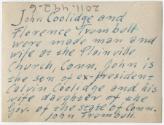 2011.49.2.6
John Coolidge and
Florence Trombolt
were made man and
wife at the Plainville
Church, Conn. John is
the son of ex-president
Calvin Coolidge and his
wife daughter of the
Gov. of the state of Conn.
John Trombull.